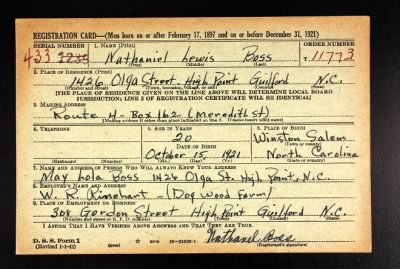 REGISTRATION CARD—(Men born on or after February 17, 1897 and on or before December 31, 1921)
SERIAL NUMBER 1. NAME (Print) ORDER NUMBER
433 Nathaniel Lewis Boss T 11773
(First) (Middle) (Last)
2. PLACE OF RESIDENCE (Print)
1426 Olga Street High Point Guilford N.C.
(Number and street) (Town, township, village, or city) (County) (State)
[THE PLACE OF RESIDENCE GIVEN ON THE LINE ABOVE WILL DETERMINE LOCAL BOARD
JURISDICTION; LINE 2 OF REGISTRATION CERTIFICATE WILL BE IDENTICAL]
3. MAILING ADDRESS
Route 4-Box 162-(Meredith St)
[Mailing address if other than place indicated on line 2. If same insert word same]
4. TELEPHONE 5. AGE IN YEARS 6. PLACE OF BIRTH
20 Winston Salem
DATE OF BIRTH (Town or county)
October 15 1921 North Carolina
(Exchange) (Number) (Mo.) (Day) (Yr.) (State or country)
7. NAME AND ADDRESS OF PERSON WHO WILL ALWAYS KNOW YOUR ADDRESS
May Lola Boss 1426 Olga St. High Point, N.C.
8. EMPLOYER'S NAME AND ADDRESS
W. R. Rinehart - (Dog Wood Farm)
9. PLACE OF EMPLOYMENT OR BUSINESS
308 Gordon Street High Point Guilford N.C.
(Number and street or R. F. D. number) (Town) (County) (State)
I AFFIRM THAT I HAVE VERIFIED ABOVE ANSWERS AND THAT THEY ARE TRUE.
D. S. S. Form 1 (over) GPO Nathaniel Boss
(Revised 1-1-42) (Registrant's signature)